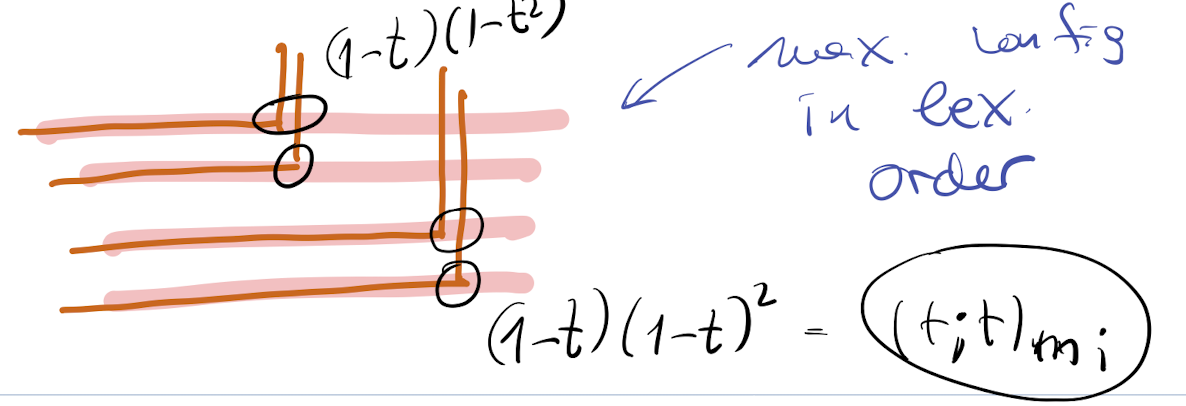 (1-t)(1-t²)
max. config
in lex.
order
(1-t)(1-t)² = (t;t)mᵢ